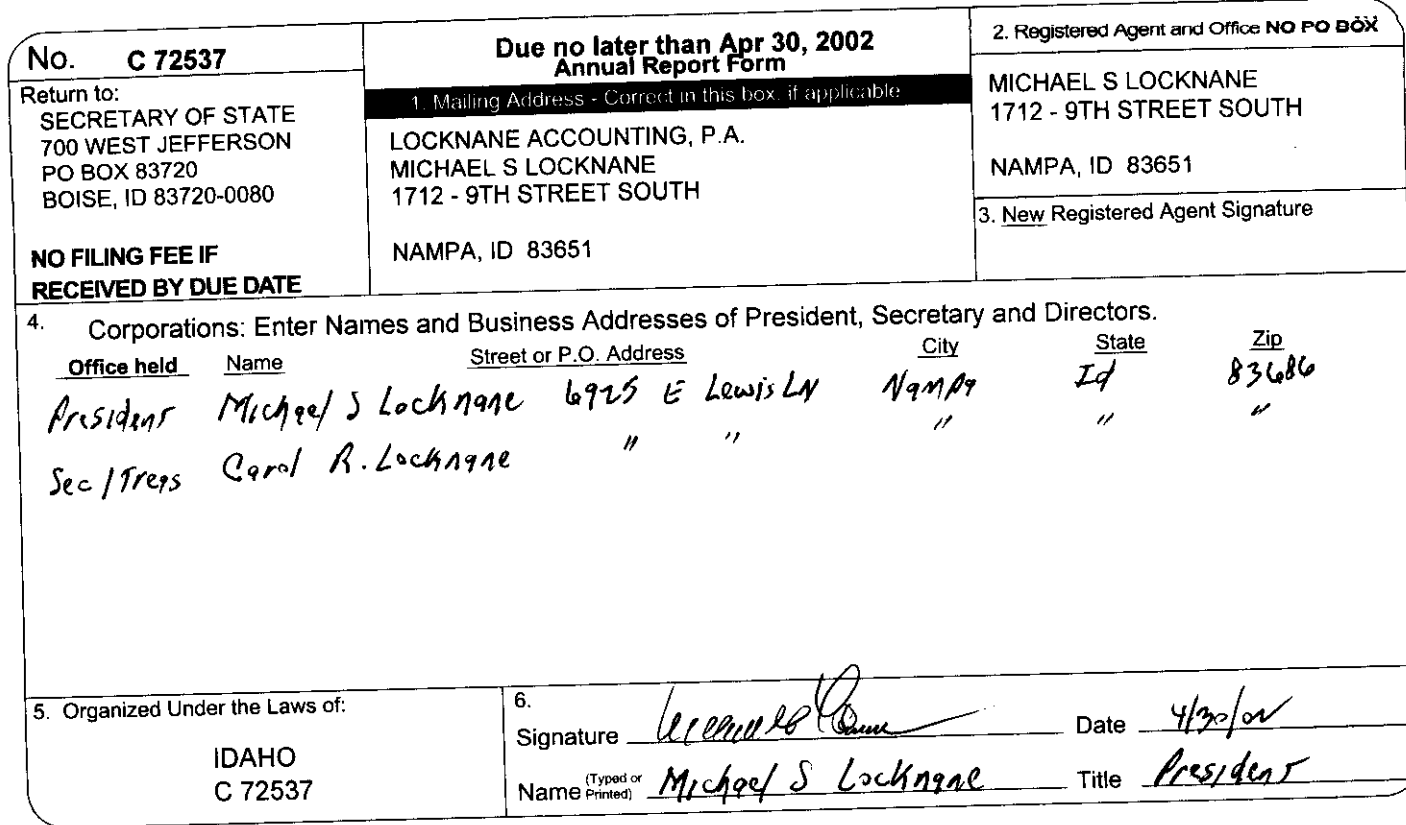 No. C 72537
Return to:
SECRETARY OF STATE
700 WEST JEFFERSON
PO BOX 83720
BOISE, ID 83720-0080
NO FILING FEE IF
RECEIVED BY DUE DATE
Due no later than Apr 30, 2002
Annual Report Form
1. Mailing Address - Correct in this box, if applicable
LOCKNANE ACCOUNTING, P.A.
MICHAEL S LOCKNANE
1712 - 9TH STREET SOUTH
NAMPA, ID 83651
2. Registered Agent and Office NO PO BOX
MICHAEL S LOCKNANE
1712 - 9TH STREET SOUTH
NAMPA, ID 83651
3. New Registered Agent Signature
4. Corporations: Enter Names and Business Addresses of President, Secretary and Directors.
Office held Name Street or P.O. Address City State Zip
President Michael S Locknane 6925 E Lewis LN Nampa Id 83686
Sec/Treas Carol R. Locknane " " " " "
5. Organized Under the Laws of:
IDAHO
C 72537
6.
Signature Date 4/30/02
Name (Typed or Printed) Michael S Locknane Title President